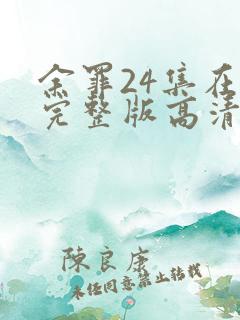 余罪24集在
完整版高清
陳良康
未经同意禁止转载